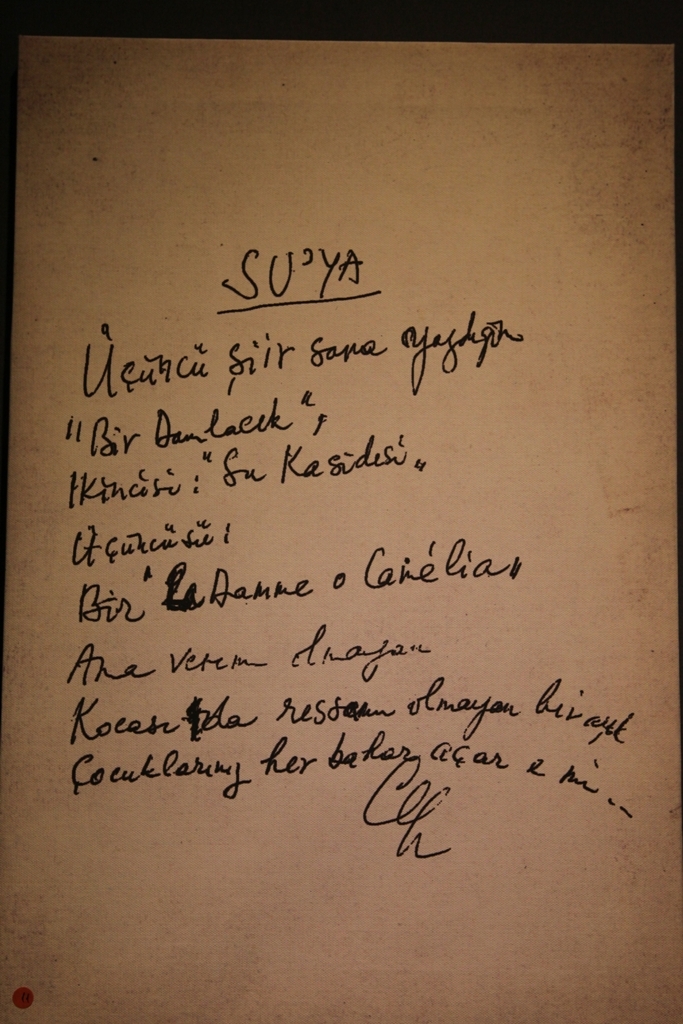 SU'YA
Üçüncü şiir sana yazdığım
"Bir Damlacık",
İkincisi: "Su Kasidesi"
Üçüncüsü:
Bir "La Damme o Camélia"
Ama verem olmayan
Kocası da ressam olmayan bir aşk
Çocuklarımız her bahar açar e mi..
11